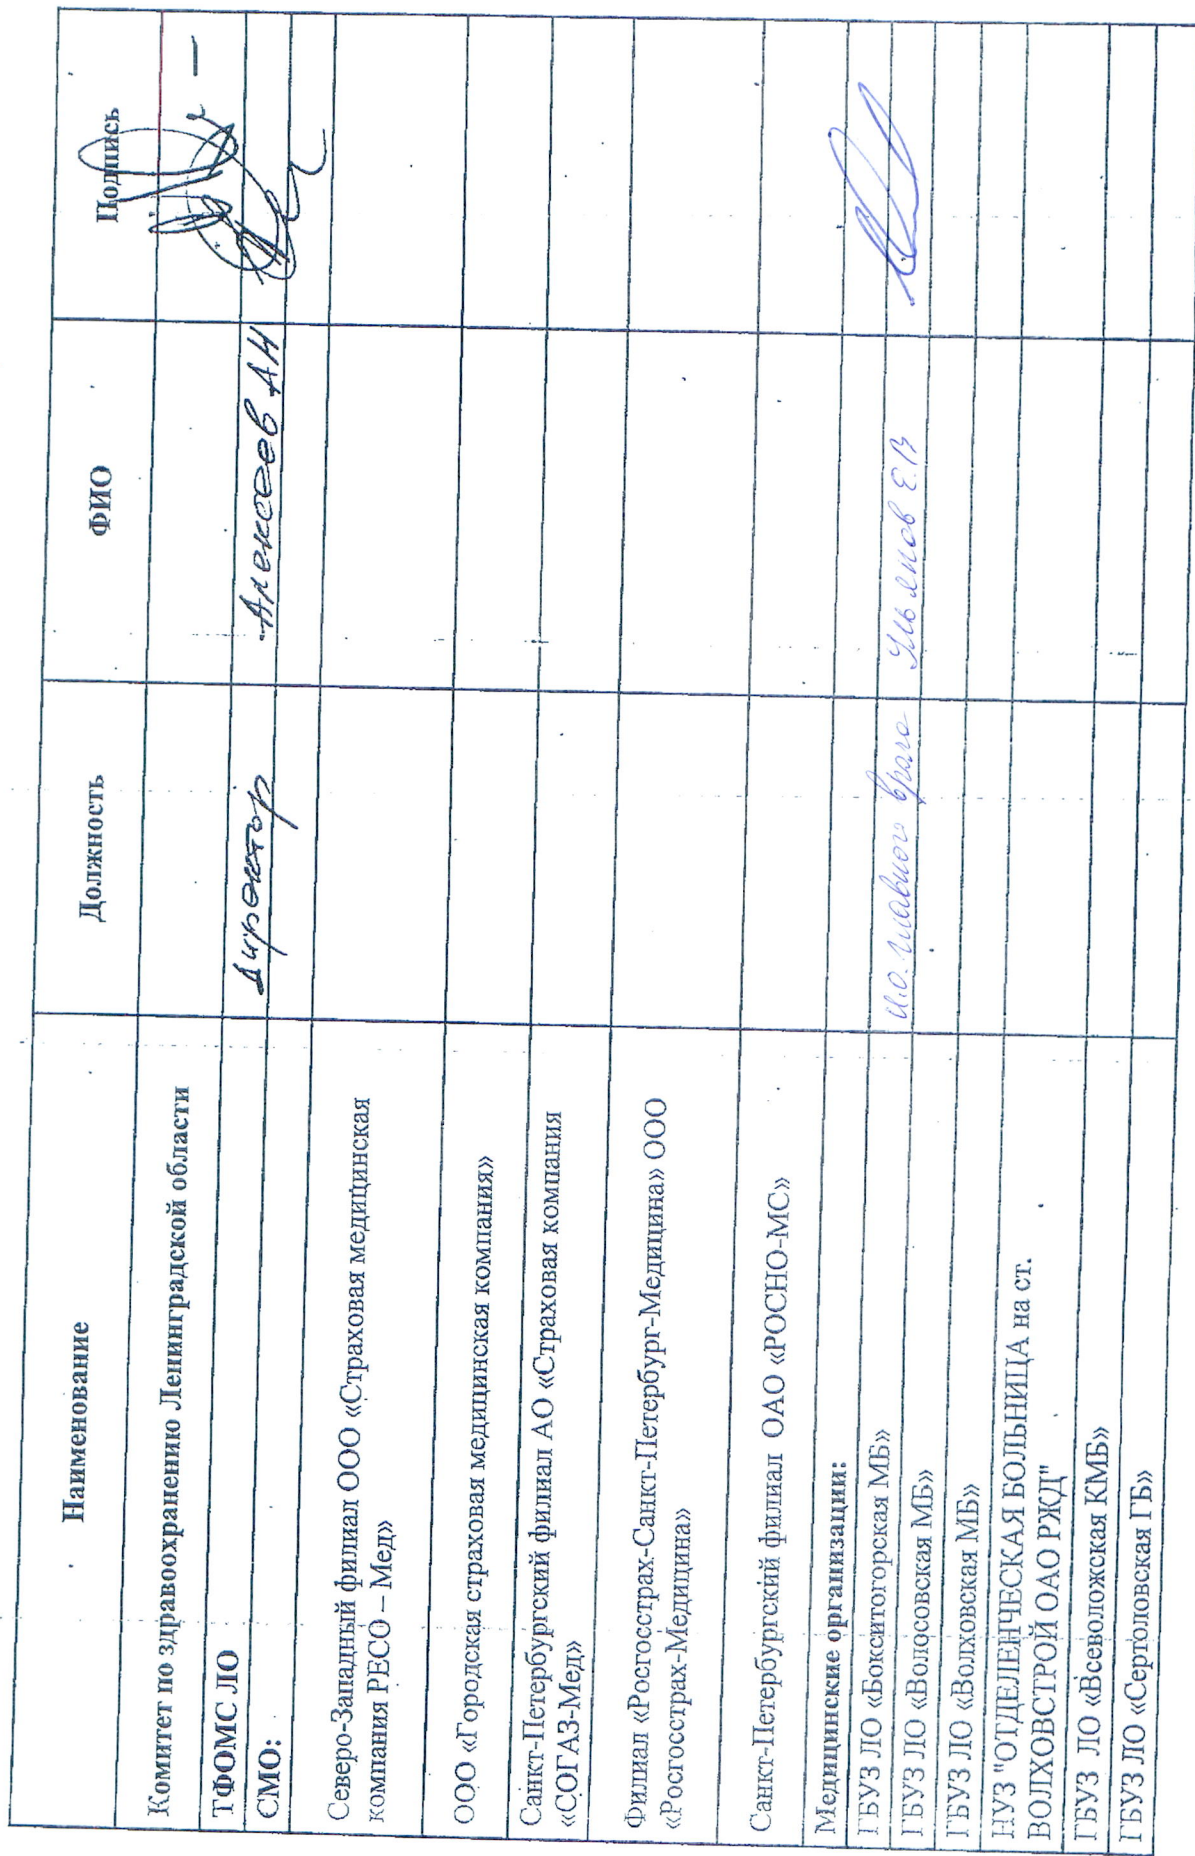 Наименование
Должность
ФИО
Подпись
Комитет по здравоохранению Ленинградской области
ТФОМС ЛО
директор
Алексеев АН
СМО:
Северо-Западный филиал ООО «Страховая медицинская
компания РЕСО – Мед»
ООО «Городская страховая медицинская компания»
Санкт-Петербургский филиал АО «Страховая компания
«СОГАЗ-Мед»
Филиал «Росгосстрах-Санкт-Петербург-Медицина» ООО
«Росгосстрах-Медицина»
Санкт-Петербургский филиал ОАО «РОСНО-МС»
Медицинские организации:
ГБУЗ ЛО «Бокситогорская МБ»
ГБУЗ ЛО «Волосовская МБ»
и.о. главного врача
Ульянов Е.В
ГБУЗ ЛО «Волховская МБ»
НУЗ "ОТДЕЛЕНЧЕСКАЯ БОЛЬНИЦА на ст.
ВОЛХОВСТРОЙ ОАО РЖД"
ГБУЗ ЛО «Всеволожская КМБ»
ГБУЗ ЛО «Сертоловская ГБ»